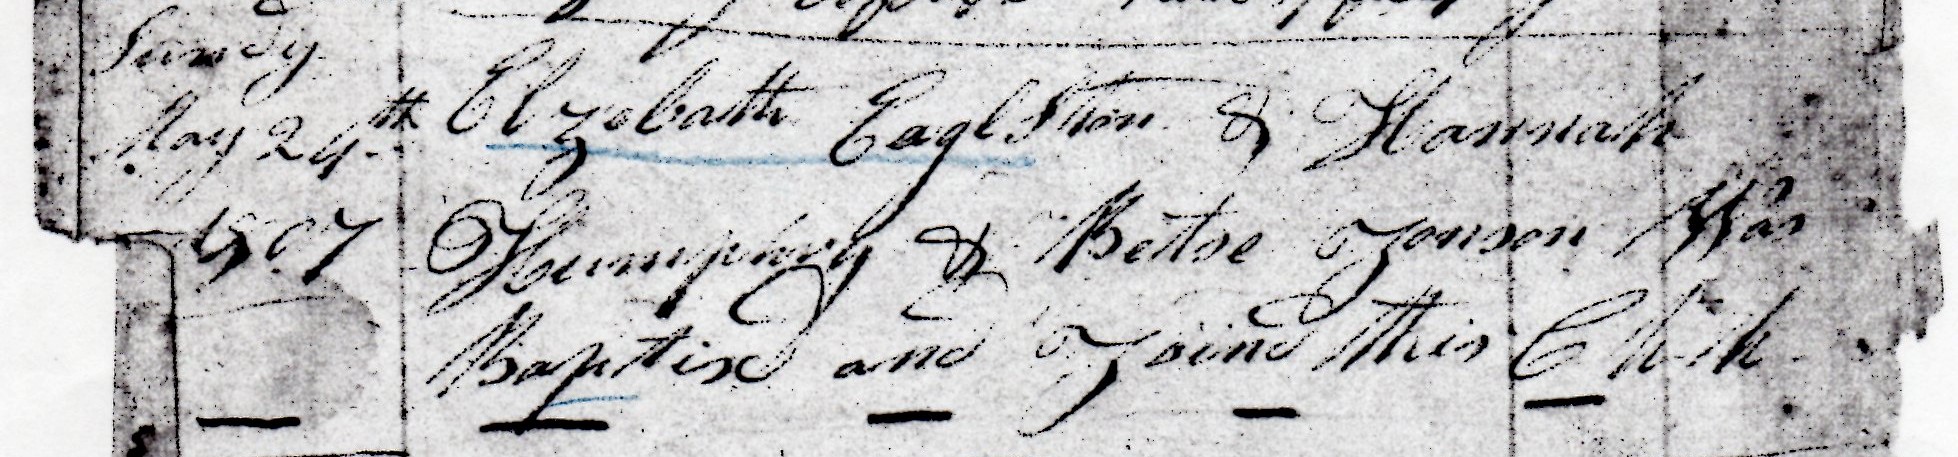 Sundy
May 24th Elzebath Eaglston & Hannah
1807 Humphrey & Betse Jonson Was
Baptisd and Joind this Chh